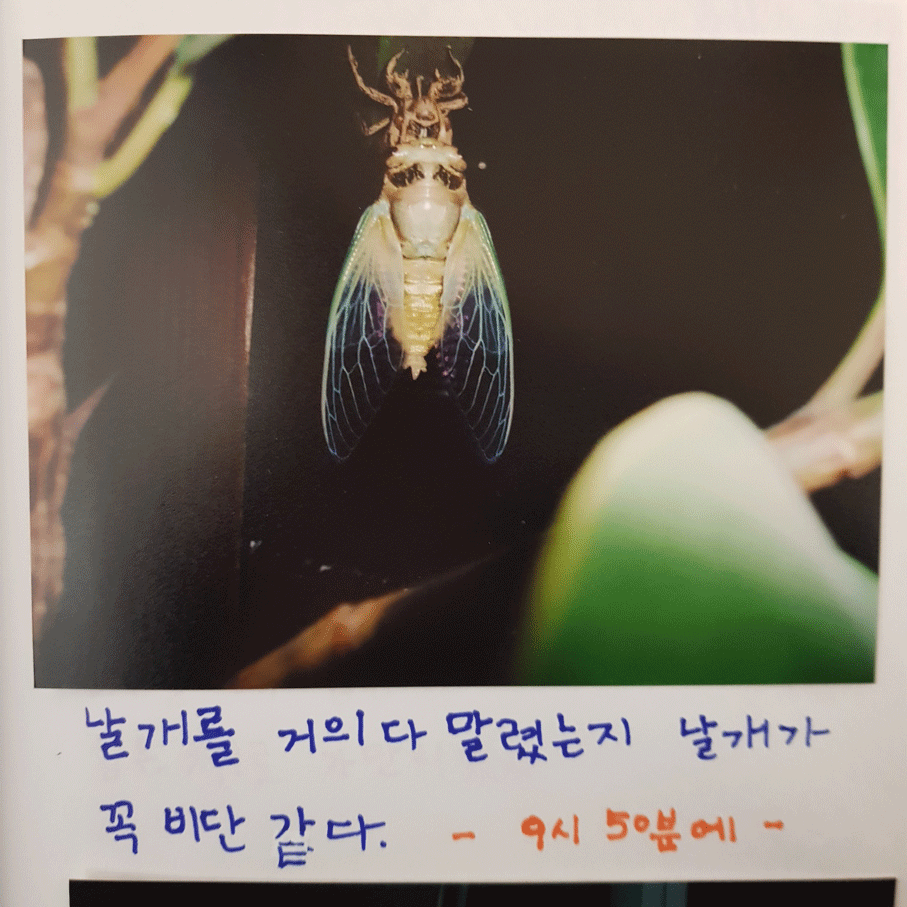 날개를 거의 다 말렸는지 날개가
꼭 비단 같다. - 9시 50분에 -